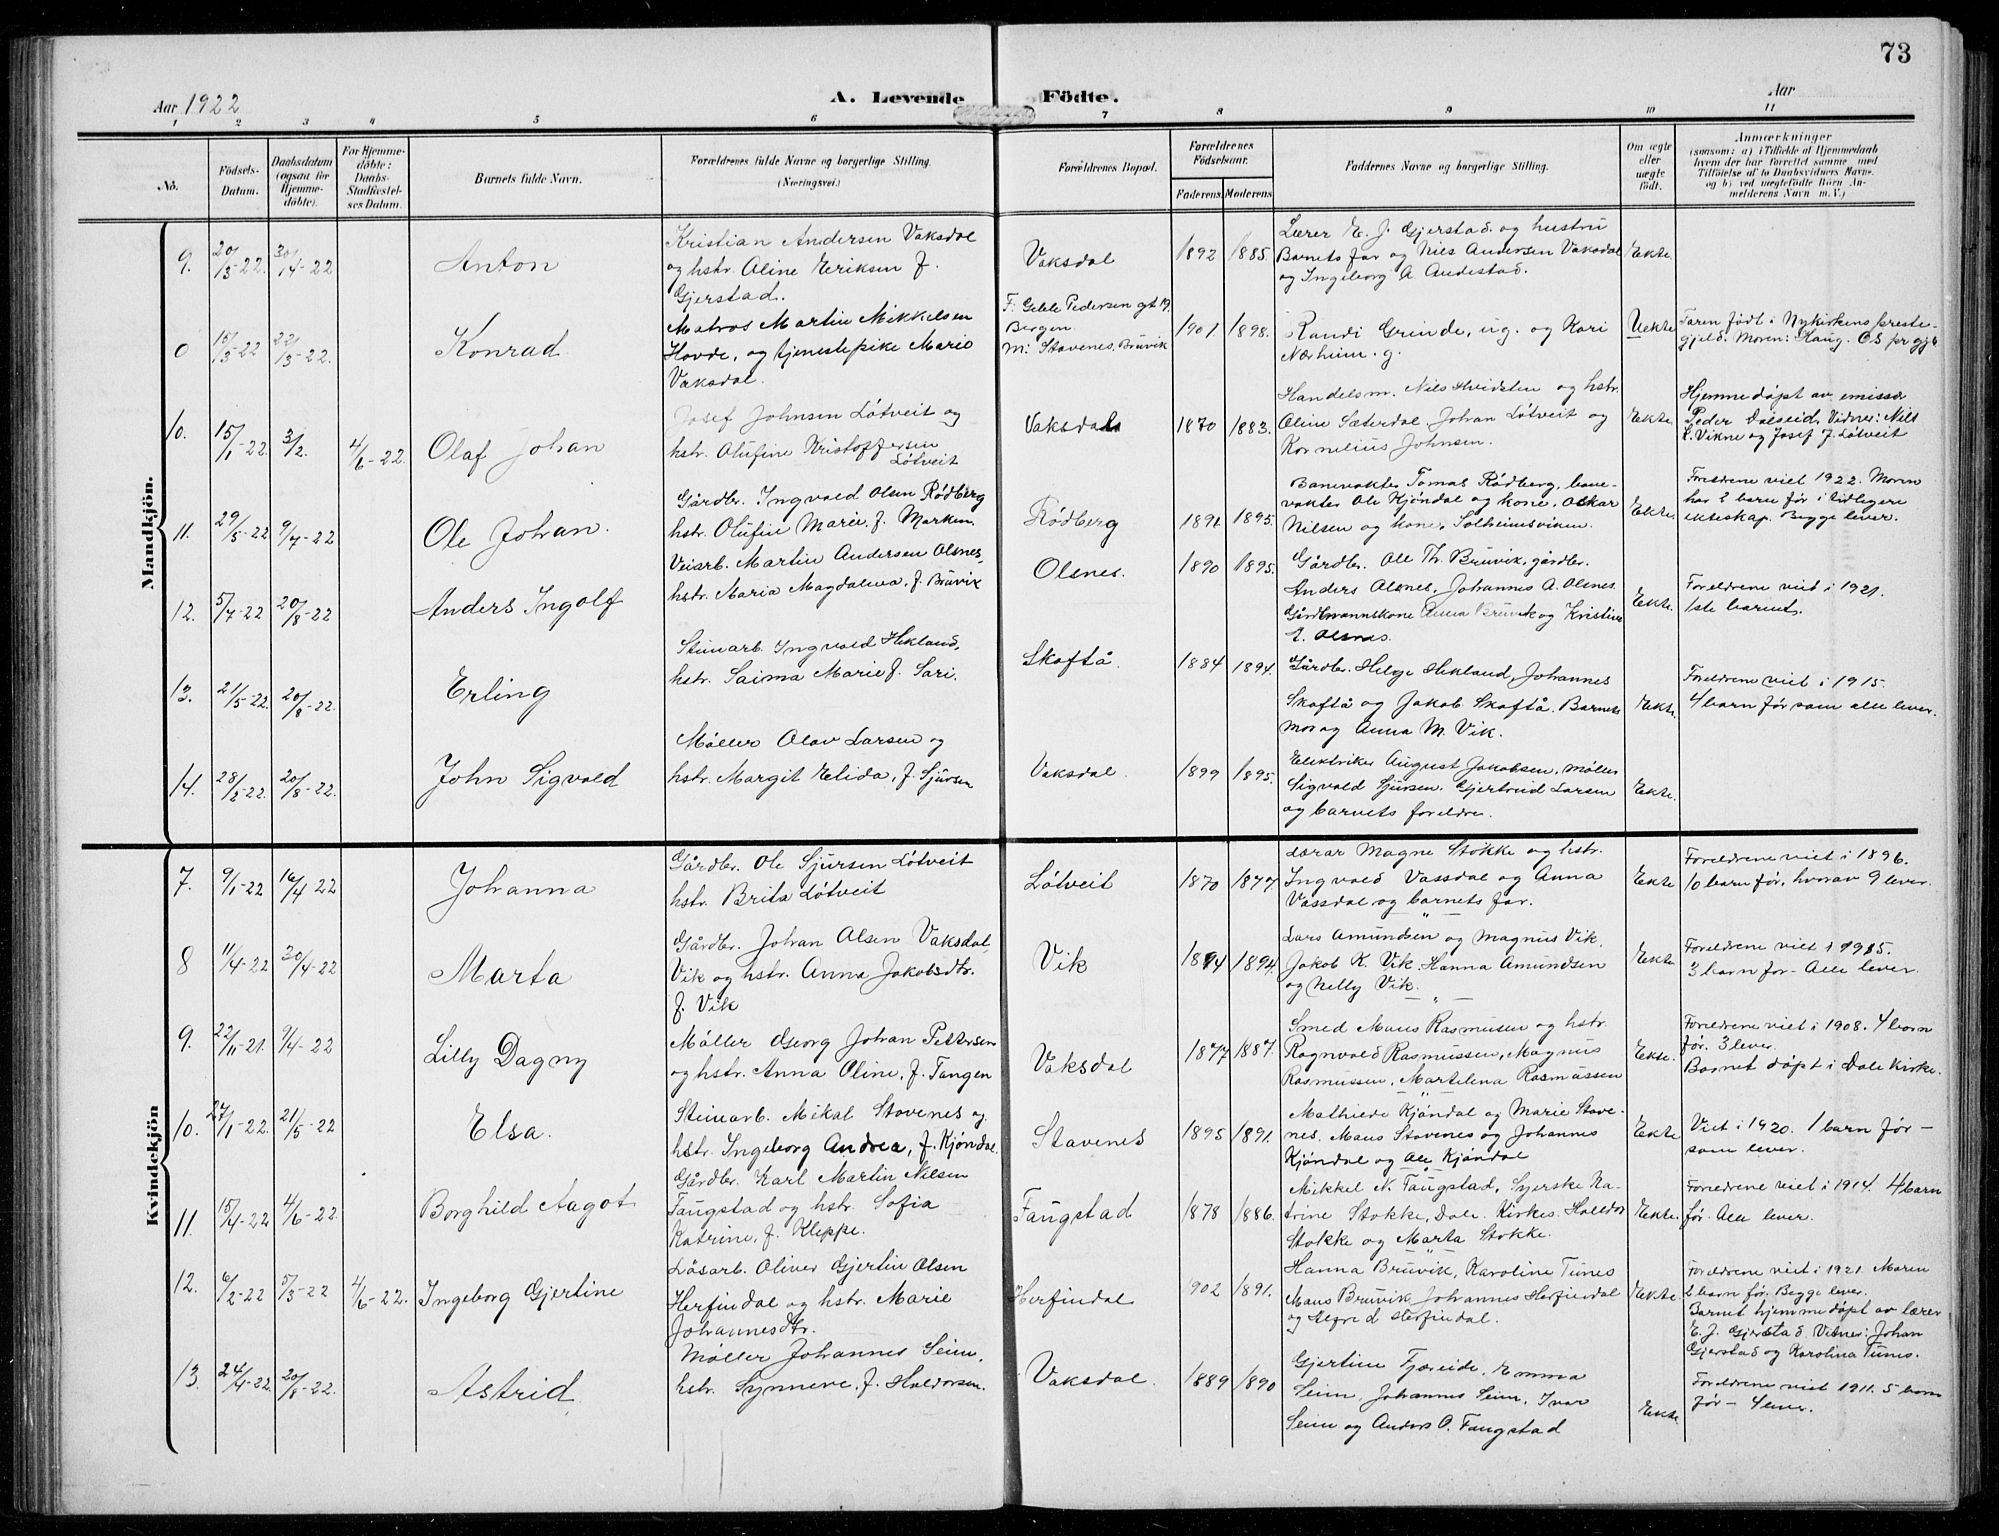 73
Aar 1922
A. Levende Födte.
Aar
1 2 3 4 5 6 7 8 9 10 11
No.
Födsels-Datum.
Daabsdatum (ogsaa for Hjemmedöbte).
For Hjemmedöbte: Daabs-Stadfæstelses Datum.
Barnets fulde Navn.
Forældrenes fulde Navne og borgerlige Stilling. (Næringsvei.)
Forældrenes Bopæl.
Forældrenes Födselsaar.
Faderens Moderens
Faddernes Navne og borgerlige Stilling.
Om ægte eller uægte födt.
Anmærkninger
(saasom: a) i Tilfælde af Hjemmedaab
hvem der har forrettet samme, med
Tilföielse af to Daabsvidners Navne.
og b) ved uægtefödte Börn An-
melderens Navn m. V.)
Mandkjön.
9. 20/3-22. 30/4-22 Anton
Kristian Andersen Vaksdal
og hstr. Aline Eriksen f.
Gjerstad.
Vaksdal 1892 1885.
Lærer E. J. Gjerstad og hustru
Barnets far og Nils Andersen Vaksdal
og Ingeborg A Andestad.
Ekte
0 15/3-22 22/3-22. Konrad
Matros Martin Mikkelsen
Hovde, og tjenestepike Marie
Vaksdal.
F: Gelle Pedersen gt 19.
Bergen
M: Stavenes, Bruvik
1901. 1898.
Randi Grinde, ug. og Kari
Nærheim. g.
Uekte
Faren født i Nykirkens preste-
gjeld. Moren: Haug.
10. 15/1-22. 3/2. 4/6-22. Olaf Johan
Josef Johnsen Lótveit og
hstr. Olufine Kristoffersen
Lótveit
Vaksdal 1870 1883.
Handelsm. Nils Hvidsten og hstr.
Aline Sæterdal, Johan Lótveit og
Kornelius Johnsen.
Ekte.
Hjemmedøpt av emissær
Peder Dalseid. Vidner: Nils
L. Vikne og Josef J. Lótveit
11. 29/5-22 9/7-22 Ole Johan.
Gårdbr. Ingvald Olsen Rødberg
hstr. Olufine Marie, f. Marken.
Rødberg 1891. 1895.
Banevakter Tomas Rødberg, bane-
vakter Ole Kjøndal og kone, Oskar
Nilsen og kone, Solheimsviken.
Ekte.
Foreldrene viet 1922. Moren
har 2 barn før i tidligere
ekteskap. Begge lever.
12. 5/7-22 20/8-22 Anders Ingolf
Veiarb. Martin Andersen Olsnes,
hstr. Maria Magdalena, f. Bruvik
Olsnes. 1890 1895.
Gårdbr. Ole Th. Bruvik, gårdbr.
Anders Olsnes, Johannes A. Olsnes.
Gårdmannskone Anna Bruvik og Kristine
A. Olsnes.
Ekte.
Foreldrene viet i 1921.
1ste barnet.
13. 21/5-22. 20/8-22. Erling
Steinarb. Ingvald Hekland,
hstr. Saima Marie f. Sari.
Skoftå. 1884 1894.
Gårdbr. Helge Hekland, Johannes
Skoftå og Jakob Skoftå. Barnets
mor og Anna M. Vik.
Ekte.
Foreldrene viet i 1915.
4 barn før som alle lever.
14. 28/2-22. 20/8-22. John Sigvald
Møller Olav Larsen og
hstr. Margit Elida, f. Sjursen
Vaksdal. 1899 1895.
Elektriker August Jakobsen, møller
Sigvald Sjursen, Gjertrud Larsen
og barnets foreldre.
Ekte.
Kvindekjön
7. 9/1-22 16/4-22 Johanna
Gårdbr. Ole Sjursen Lótveit
hstr. Brita Lótveit
Lótveit 1870 1877.
Lærar Magne Stokke og hstr.
Ingvald Vassdal og Anna
Vassdal og barnets far.
Ekte
Foreldrene viet i 1896.
10 barn før, hvorav 9 lever.
8 11/4-22 30/4-22 Marta
Gårdbr. Johan Olsen Vaksdal,
Vik og hstr. Anna Jakobsdtr.
f. Vik
Vik 1894 1894.
Lars Amundsen og Magnus Vik,
Jakob K. Vik, Hanna Amundsen
og Nelly Vik.
Ekte.
Foreldrene viet i 1915.
3 barn før - Alle lever.
9. 22/11-21. 9/4-22 Lilly Dagny
Møller Georg Johan Pettersen
og hstr. Anna Oline, f. Tangen
Vaksdal 1877 1887.
Smed Mons Rasmusen og hstr.
Ragnvald Rasmussen, Magnus
Rasmussen, Martelena Rasmussen
Ekte.
Foreldrene viet i 1908. 4 barn
før. 3 lever.
Barnet døpt i Dale Kirke.
10. 27/1-22. 21/5-22 Elsa.
Steinarb. Mikal Stavenes og
hstr. Ingeborg Andrea, f. Kjøndal.
Stavenes 1895 1891.
Mathiede Kjøndal og Marie Stave-
nes. Mons Stavenes og Johannes
Kjøndal og Ole Kjøndal
Ekte
Viet i 1920. 1 barn før -
som lever.
11. 15/4-22 4/6-22. Borghild Aagot
Gårdbr. Karl Martin Nilsen
Faugstad og hstr. Sofia
Katrine, f. Kleppe.
Faugstad 1878 1886.
Mikkel N. Faugstad, Syerske Ka-
trine Stokke, Dale. Kirkes. Halldor
Stokke og Marta Stokke.
Ekte.
Foreldrene viet i 1914. 4 barn
før. Alle lever.
12. 6/2-22 5/3-22 4/6-22. Ingeborg Gjertine
Løsarb. Oliver Gjertin Olsen
Herfindal og hstr. Marie
Johannesdtr.
Herfindal 902 1891.
Hanna Bruvik, Karoline Tunes
Mons Bruvik, Johannes Herfindal
og Herfindal.
Ekte
Foreldrene viet i 1921. Moren
2 barn før. Begge lever.
Barnet hjemmedøpt av lærer
E. J. Gjerstad. Vitner: Johan
Gjerstad og Karolina Tunes.
13. 24/4-22. 20/8-22. Astrid
Møller Johannes Seim,
hstr. Synneve, f. Haldorsen.
Vaksdal. 1889 1890
Gjertine Fjæreide, Emma
Seim, Johannes Seim, Ivar
Seim og Anders O. Faugstad
Ekte.
Foreldrene viet 1911. 5 barn
før - 4 lever.